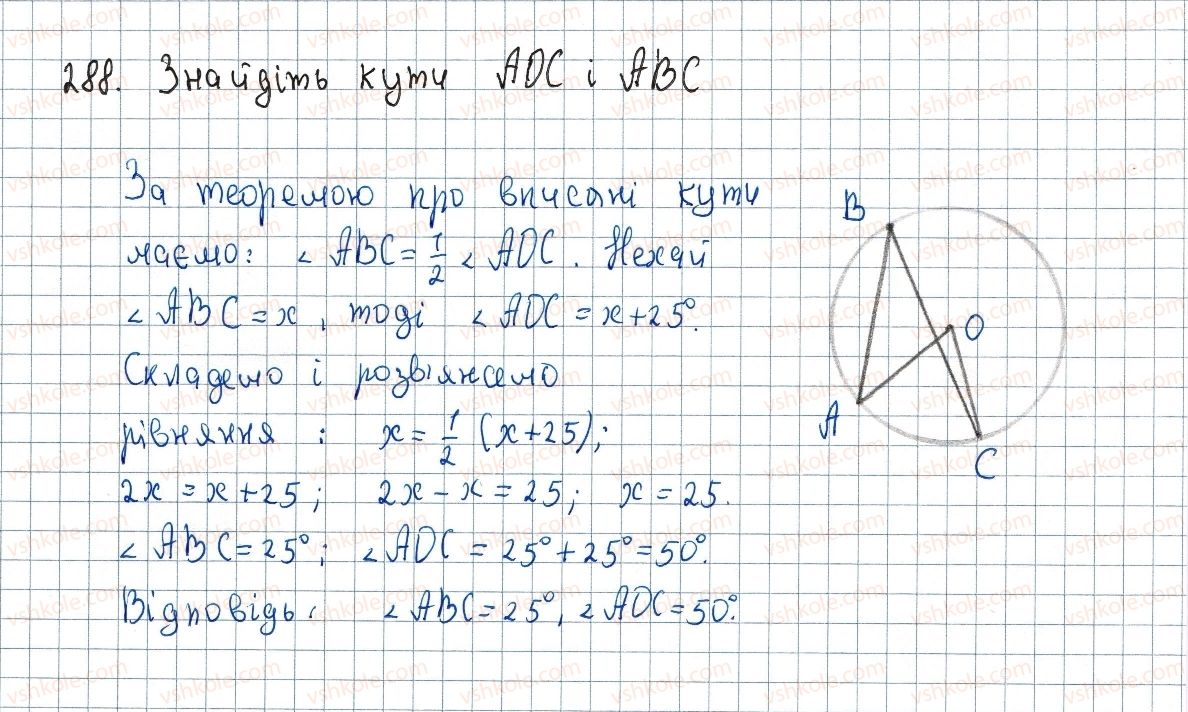 288. Знайдіть кути AOC і ABC
За теоремою про вписані кути
маємо: ∠ ABC = 1/2 ∠ AOC. Нехай
∠ ABC = x, тоді ∠ AOC = x + 25°.
Складемо і розв'яжемо
рівняння: x = 1/2 (x + 25);
2x = x + 25; 2x - x = 25; x = 25.
∠ ABC = 25°; ∠ AOC = 25° + 25° = 50°.
Відповідь: ∠ ABC = 25°, ∠ AOC = 50°.
B
O
A
C
vshkole.com